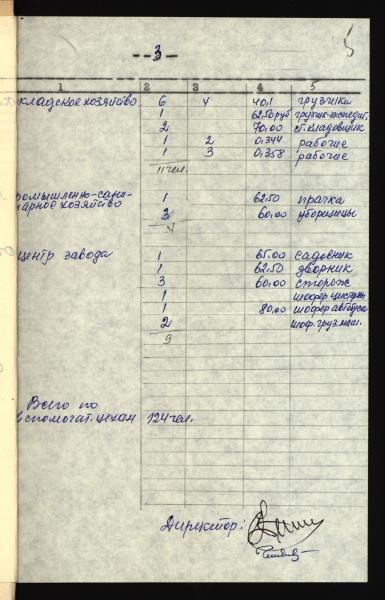 --3-
5
1 2 3 4 5
кладское хозяйство 6 V 40,1 грузчики
1 62.50руб грузчик-экспедит.
2 70.00 ст. кладовщик
1 2 0.344 рабочие
1 3 0.358 рабочие
11 чел.
ромышленно-сани- 1 62.50 прачка
арное хозяйство 3 60.00 уборщицы
4
центр завода 1 65.00 садовник
1 62.50 дворник
3 60.00 сторож
1 шофер
1 80.00 шофер автобуса
2 шоф. груз. маш.
9
Всего по
вспомогат. цехам 124 чел.
Директор: